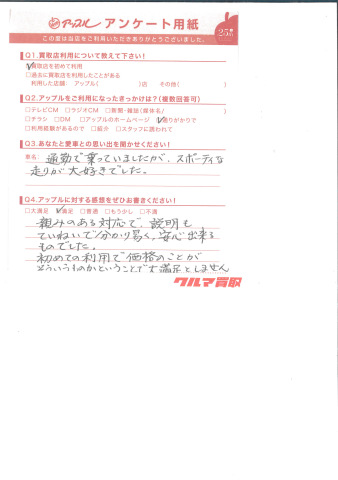 アップル アンケート用紙
この度は当店をご利用いただきありがとうございました。
25th
Q1.買取店利用について教えて下さい!
☑買取店を初めて利用
□過去に買取店を利用したことがある
利用した店舗: アップル( )店 その他( )
Q2.アップルをご利用になったきっかけは?(複数回答可)
□テレビCM □ラジオCM □新聞・雑誌(媒体名/ )
□チラシ □DM □アップルのホームページ ☑ありがかりで
□利用経験があるので □紹介 □スタッフに誘われて
Q3.あなたと愛車との思い出を聞かせて下さい!
車名: 通勤で乗っていましたが、スポーティな
走りが大好きでした。
Q4.アップルに対する感想をぜひお書きください!
□大満足 ☑満足 □普通 □もう少し □不満
親みのある対応で、説明も
ていねいで分かり易く、安心出来る
ものでした。
初めての利用で価格のことが
そういうものかということで大満足としません
クルマ買取